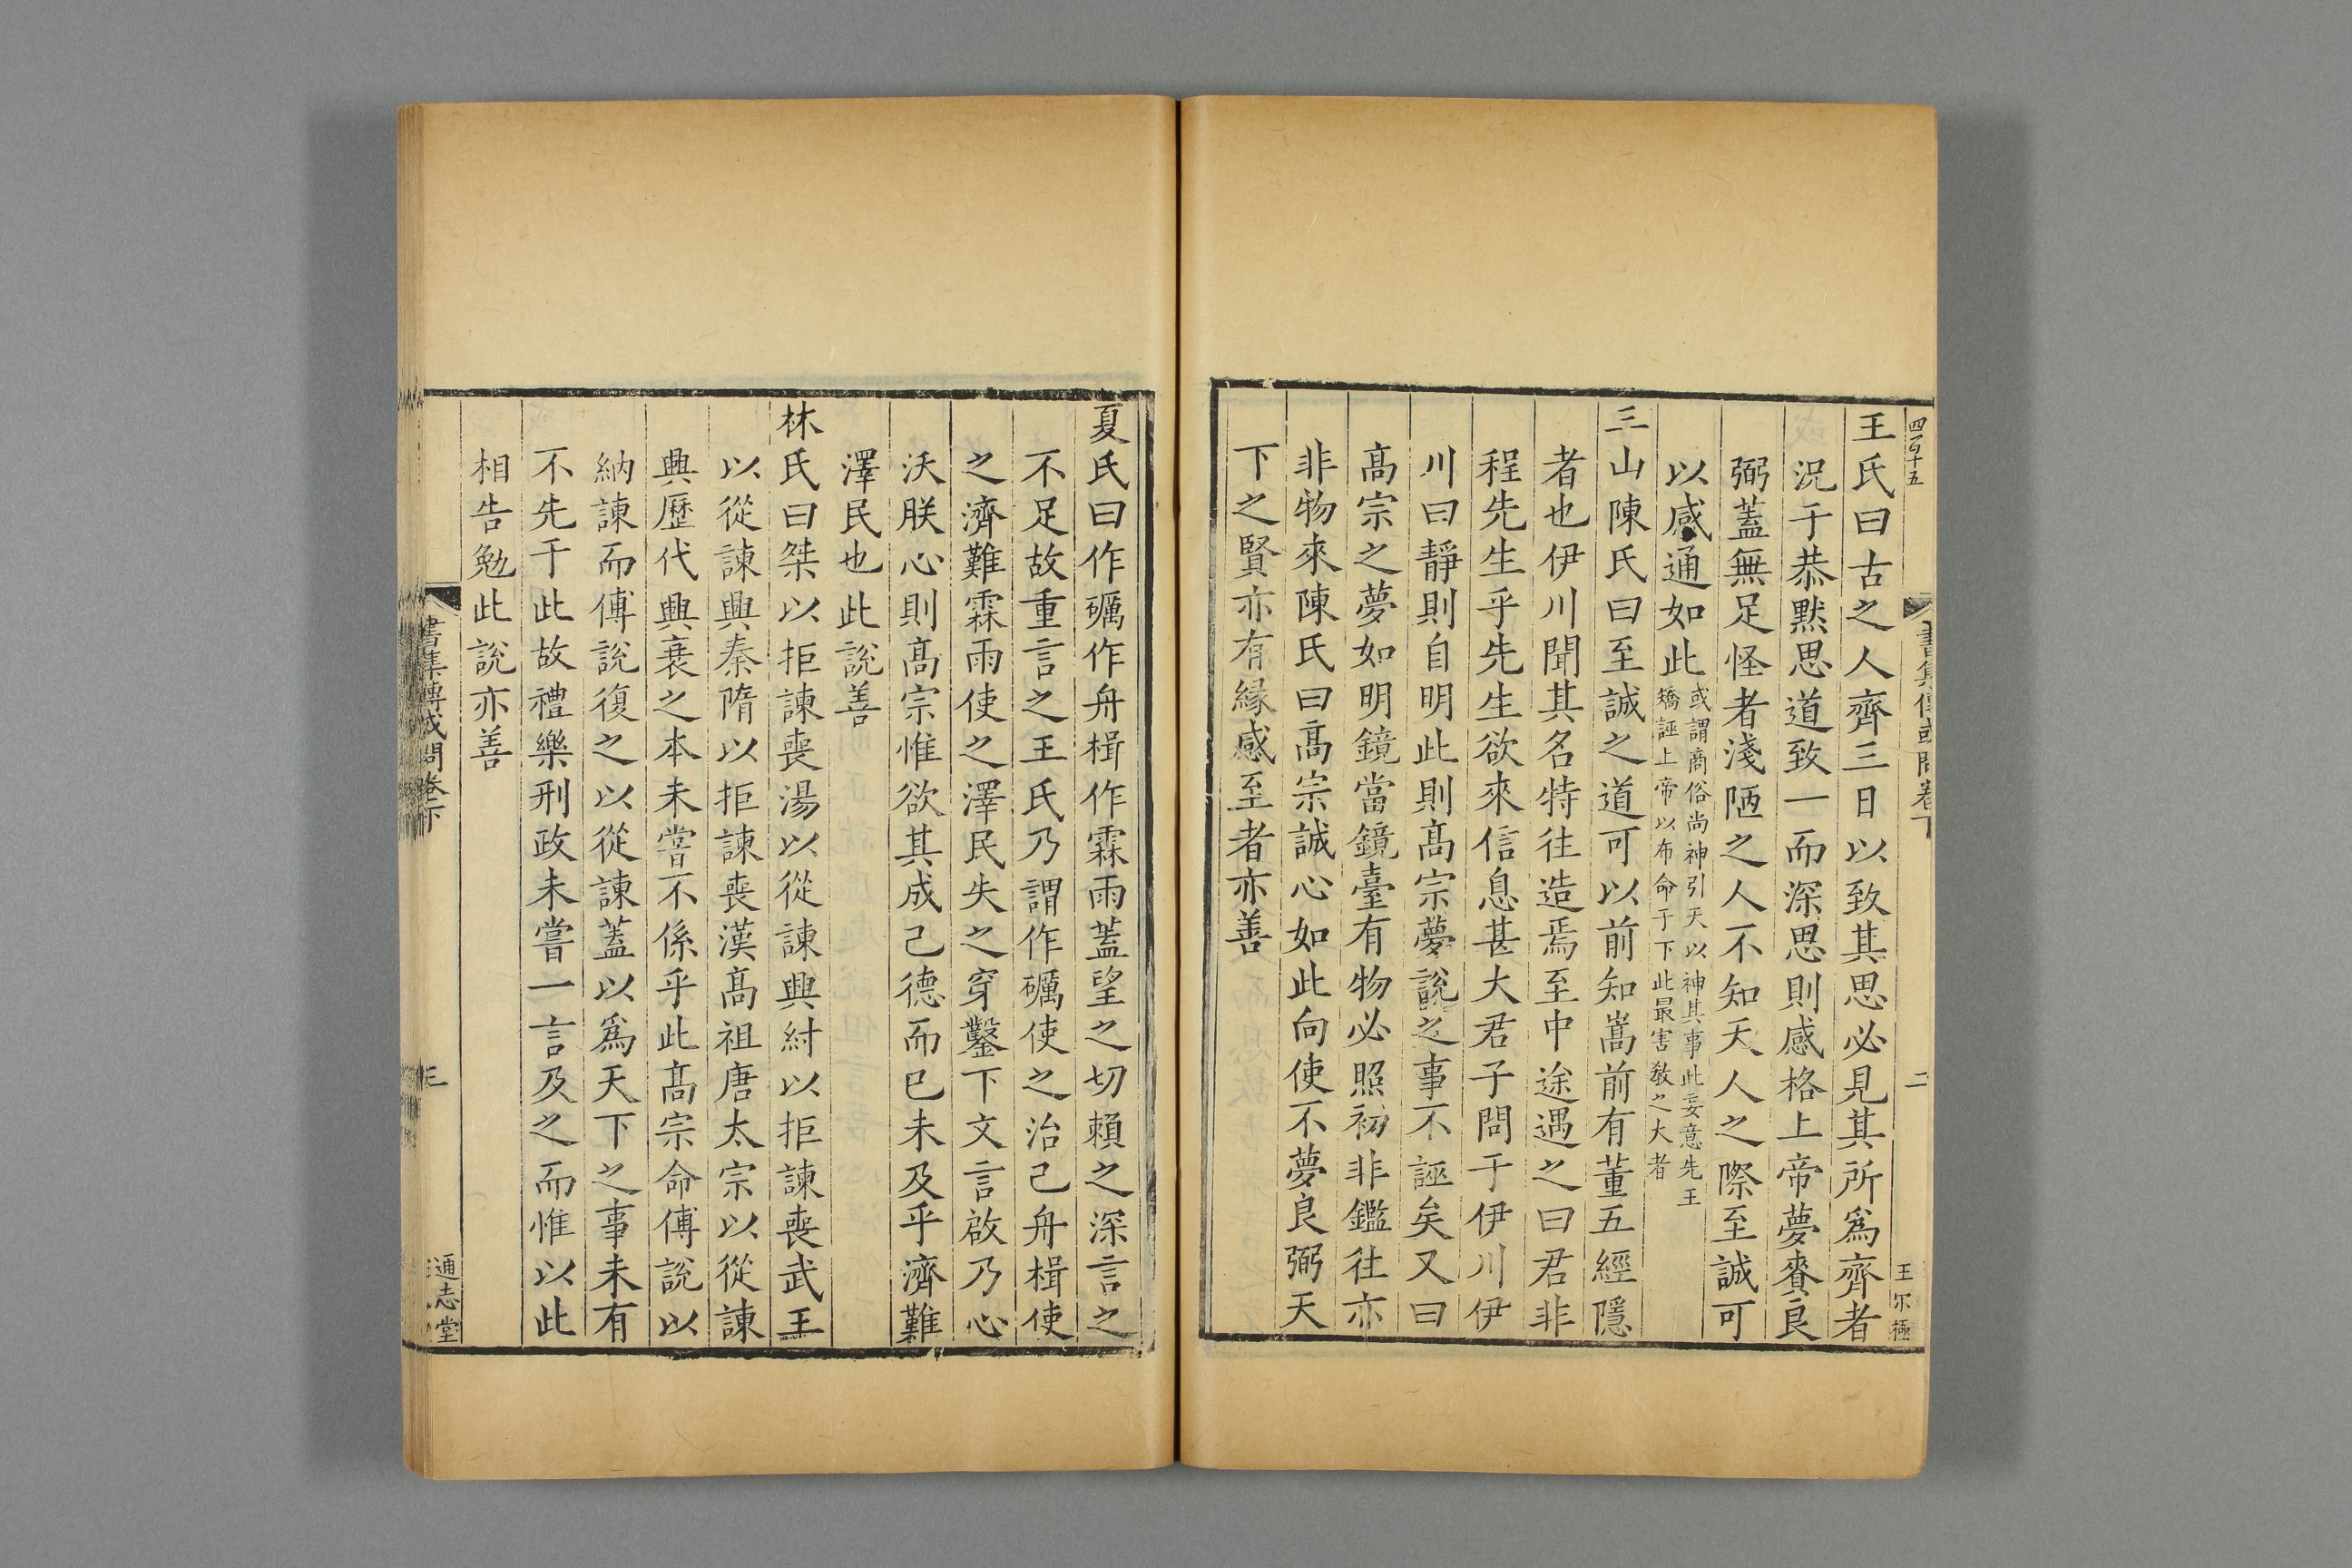 四百十五
書集傳或問卷下
二
王尔極
王氏曰古之人齊三日以致其思必見其所爲齊者
況于恭默思道致一而深思則感格上帝夢賚良
弼蓋無足怪者淺陋之人不知天人之際至誠可
以感通如此
或謂商俗尚神引天以神其事此妄意先王
矯誣上帝以布命于下此最害敎之大者
三山陳氏曰至誠之道可以前知嵩前有董五經隱
者也伊川聞其名特往造焉至中途遇之曰君非
程先生乎先生欲來信息甚大君子問于伊川伊
川曰靜則自明此則髙宗夢說之事不誣矣又曰
髙宗之夢如明鏡當鏡臺有物必照初非鑑往亦
非物來陳氏曰髙宗誠心如此向使不夢良弼天
下之賢亦有縁感至者亦善
夏氏曰作礪作舟楫作霖雨蓋望之切賴之深言之
不足故重言之王氏乃謂作礪使之治己舟楫使
之濟難霖雨使之澤民失之穿鑿下文言啟乃心
沃朕心則髙宗惟欲其成己德而已未及乎濟難
澤民也此說善
林氏曰桀以拒諫喪湯以從諫興紂以拒諫喪武王
以從諫興秦隋以拒諫喪漢髙祖唐太宗以從諫
興歷代興衰之本未嘗不係乎此髙宗命傅說以
納諫而傅說復之以從諫蓋以爲天下之事未有
不先于此故禮樂刑政未嘗一言及之而惟以此
相告勉此說亦善
書集傳或問卷下
三
通志堂